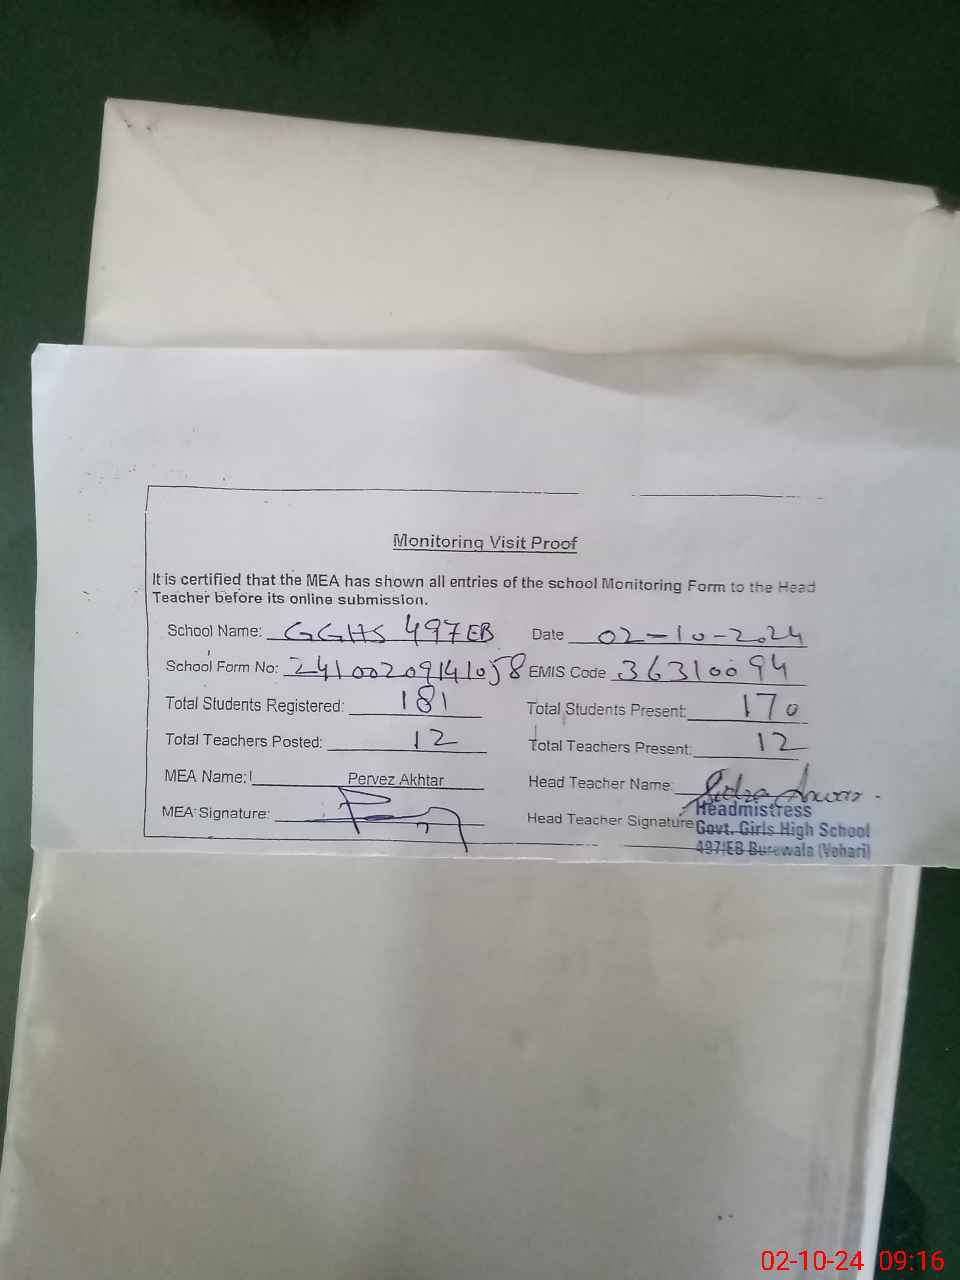 Monitoring Visit Proof
It is certified that the MEA has shown all entries of the school Monitoring Form to the Head
Teacher before its online submission.
School Name: GGHS 497EB Date 02-10-2024
School Form No: 24100209141058 EMIS Code 36310094
Total Students Registered: 181 Total Students Present: 170
Total Teachers Posted: 12 Total Teachers Present: 12
MEA Name: Pervez Akhtar Head Teacher Name:
MEA Signature: Head Teacher Signature
Headmistress
Govt. Girls High School
497/EB Burewala (Vehari)
02-10-24 09:16